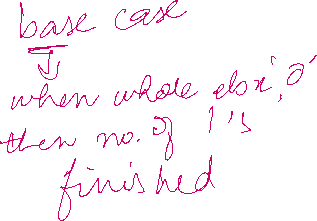 base case
when whole else '0'
then no. of 1's
finished